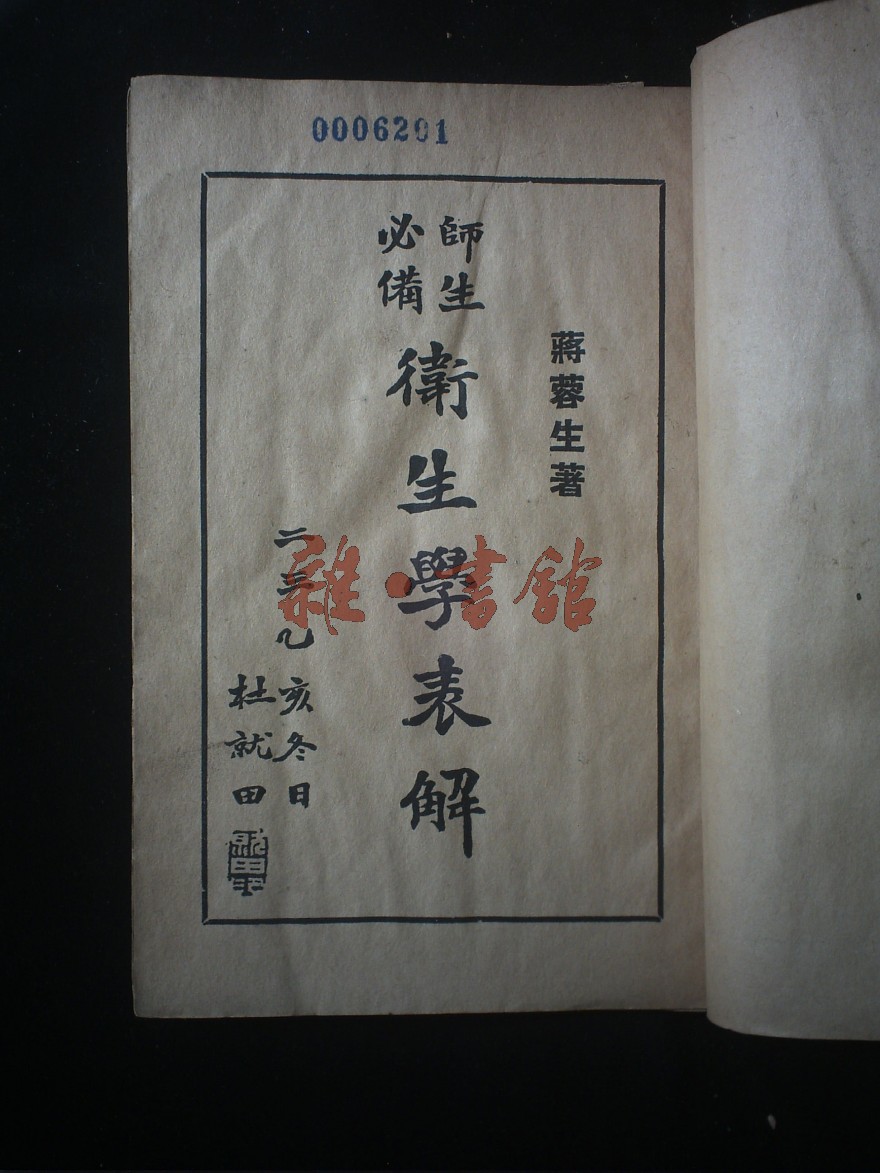 0006201
蔣蓉生著
師生
必備
衛生學表解
二三乙亥冬日
杜就田
雜·書館